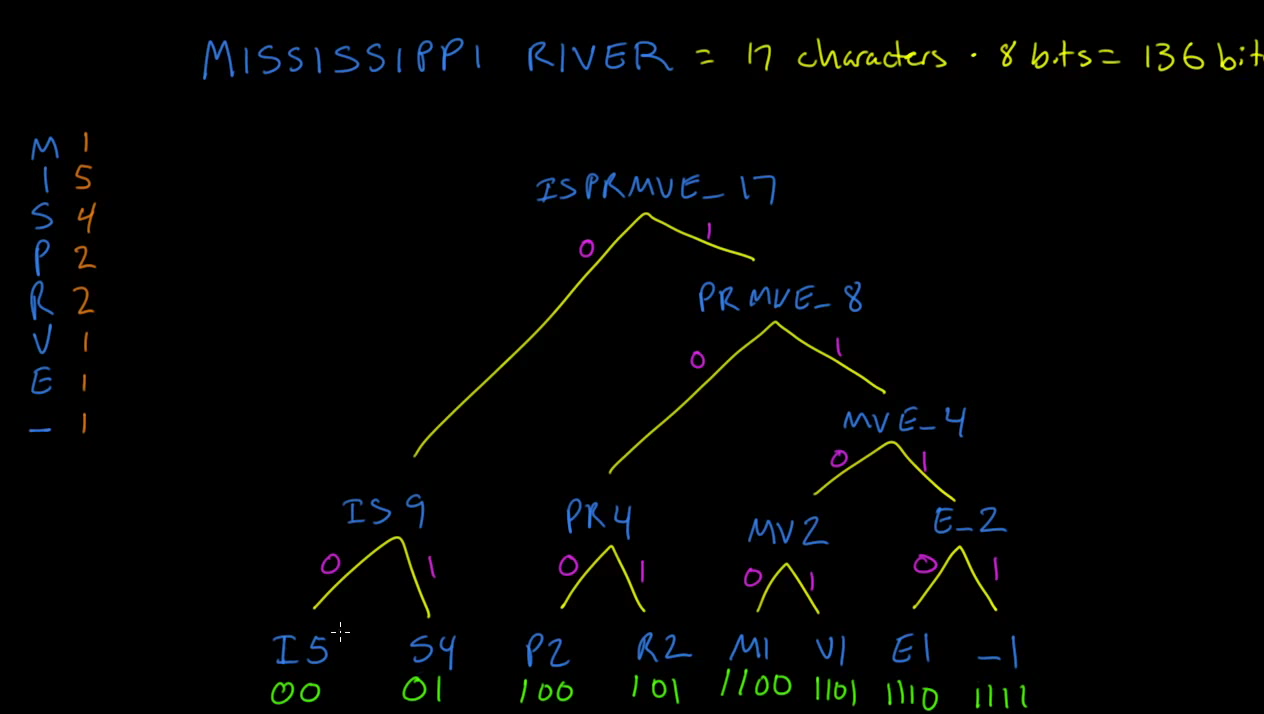 MISSISSIPPI RIVER = 17 characters · 8 bits = 136 bit
M 1
I 5
S 4
P 2
R 2
V 1
E 1
_ 1
ISPRMVE_17
0 1
PRMVE_8
0 1
MVE_4
0 1
IS9 PR4 MV2 E_2
0 1 0 1 0 1 0 1
I5 S4 P2 R2 M1 V1 E1 _1
00 01 100 101 1100 1101 1110 1111